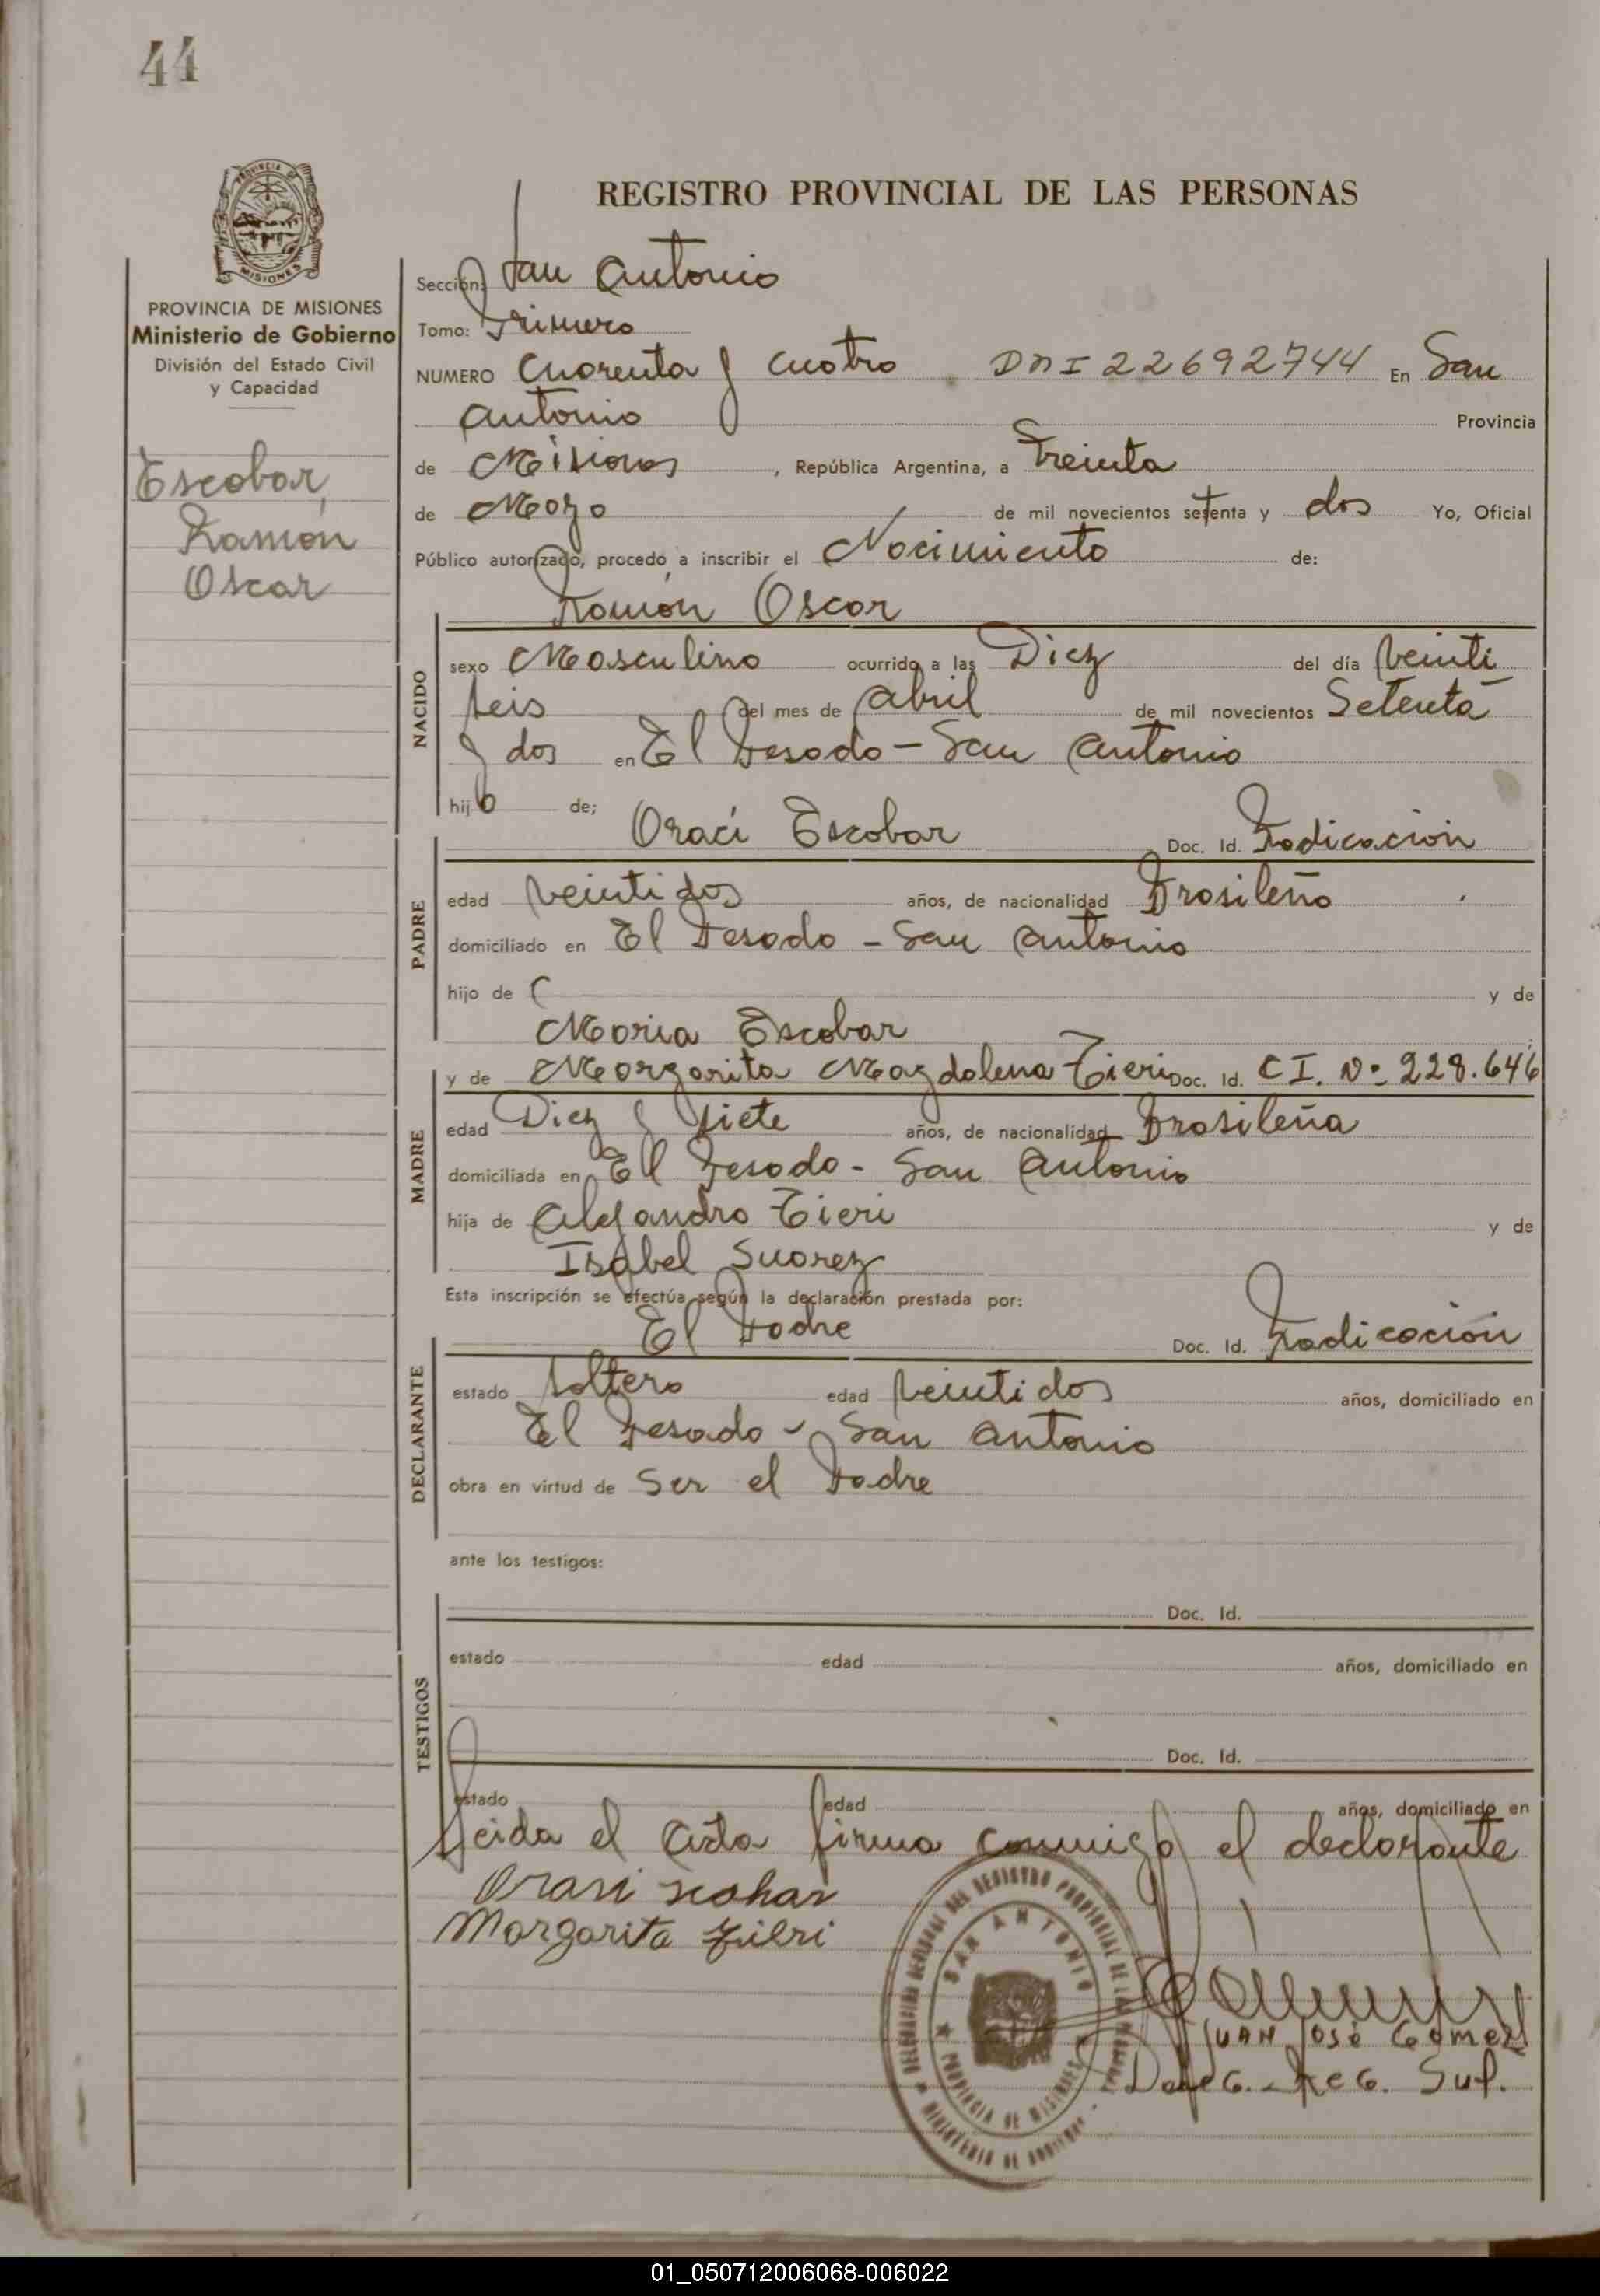 44
REGISTRO PROVINCIAL DE LAS PERSONAS
PROVINCIA DE MISIONES
Ministerio de Gobierno
División del Estado Civil
y Capacidad
Escobar,
Ramón
Oscar
Sección: San Antonio
Tomo: Primero
NUMERO Cuarenta y cuatro DNI 22692744 En San
Antonio Provincia
de Misiones, República Argentina, a Treinta
de Mayo de mil novecientos setenta y dos Yo, Oficial
Público autorizado, procedo a inscribir el Nacimiento de:
Ramón Oscar
NACIDO
sexo Masculino ocurrido a las Diez del día veinti
seis del mes de abril de mil novecientos Setenta
y dos en El Pesado - San Antonio
hijo de; Oraci Escobar Doc. Id. Radicación
PADRE
edad veintidos años, de nacionalidad Brasileño
domiciliado en El Pesado - San Antonio
hijo de y de
Maria Escobar
y de Margarita Magdalena Tieri Doc. Id. C I. Nº 228.646
MADRE
edad Diez y siete años, de nacionalidad Brasileña
domiciliada en El Pesado - San Antonio
hija de Alejandro Tieri y de
Isabel Suarez
Esta inscripción se efectúa según la declaración prestada por:
El Padre Doc. Id. Radicación
DECLARANTE
estado soltero edad veintidos años, domiciliado en
El Pesado - San Antonio
obra en virtud de Ser el Padre
ante los testigos:
TESTIGOS
Doc. Id.
estado edad años, domiciliado en
Doc. Id.
estado edad años, domiciliado en
Leida el Acta firma conmigo el declarante
Orasi scobar
Margarita
SAN ANTONIO
PROVINCIA DE MISIONES
JUAN JOSÉ GÓMEZ
Deleg. Reg. Sup.
01_050712006068-006022